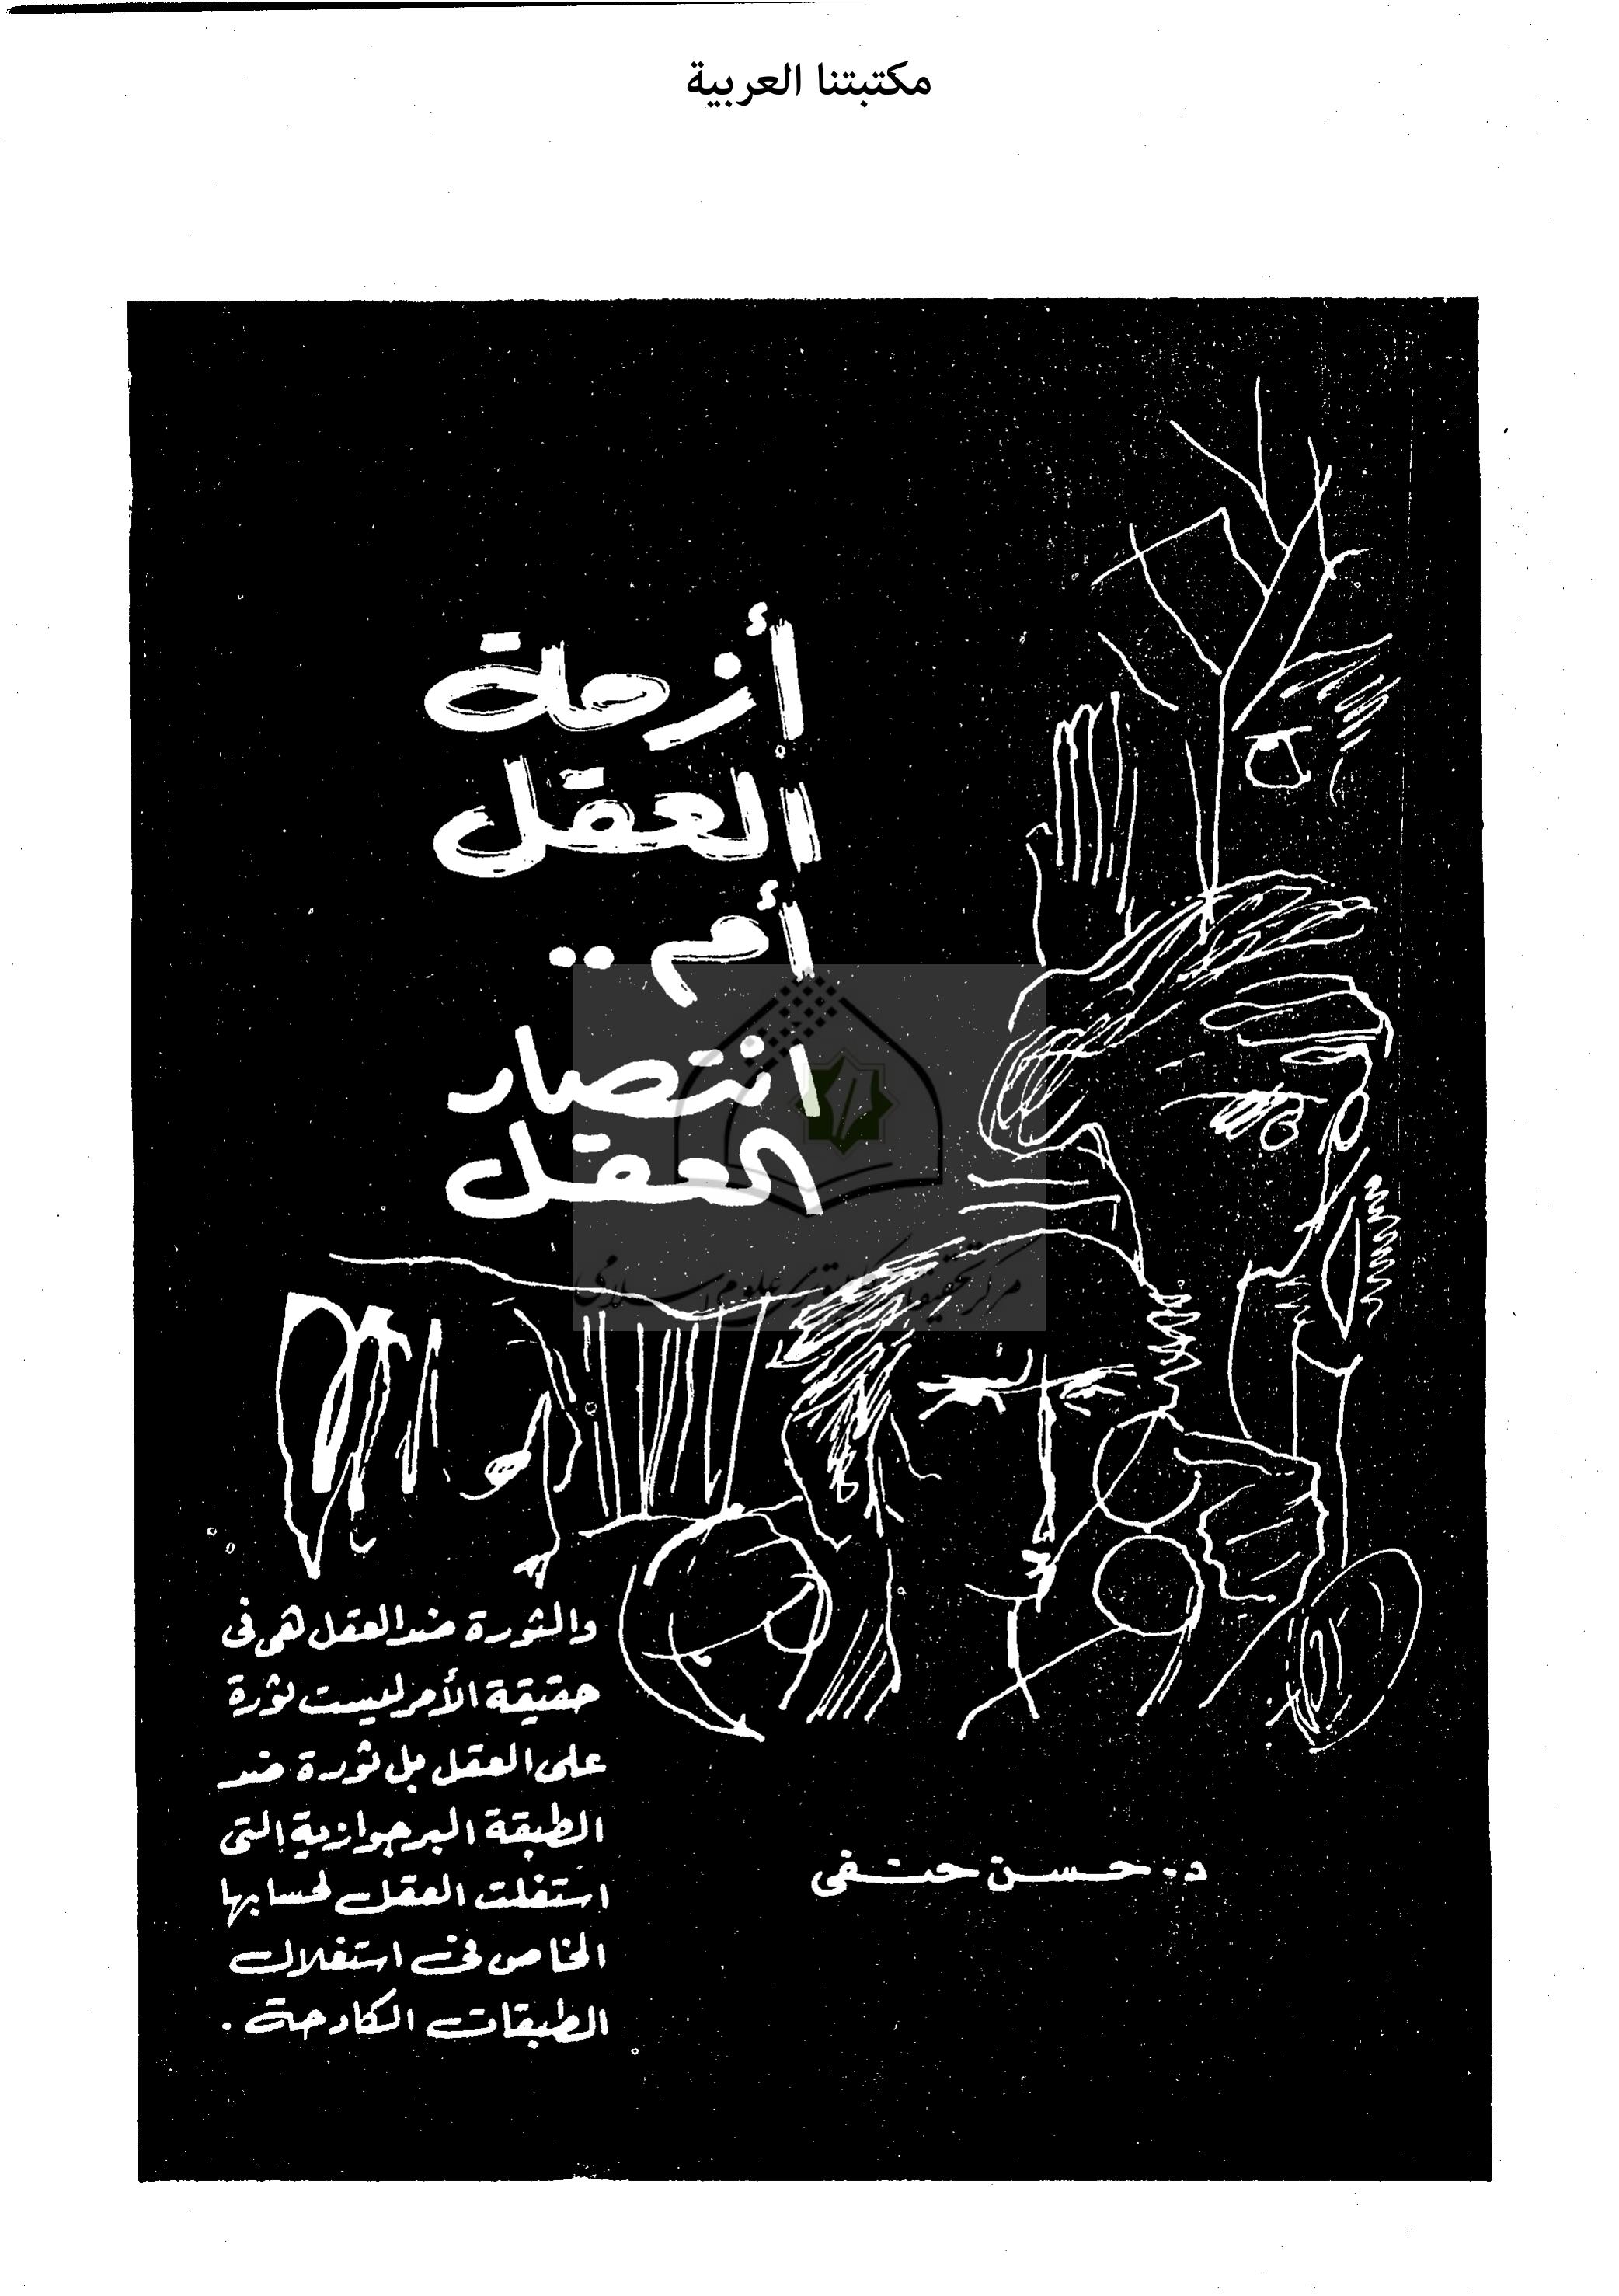 مكتبتنا العربية
أزمة
العقل
أم ..
انتصار
العقل
مركز تحقيقات كامپيوترى علوم اسلامى
والثورة ضد العقل هى فى
حقيقة الأمر ليست ثورة
على العقل بل ثورة ضد
الطبقة البرجوازية التى
استغلت العقل لحسابها
الخاص فى استغلال
الطبقات الكادحة .
د. حسن حنفى